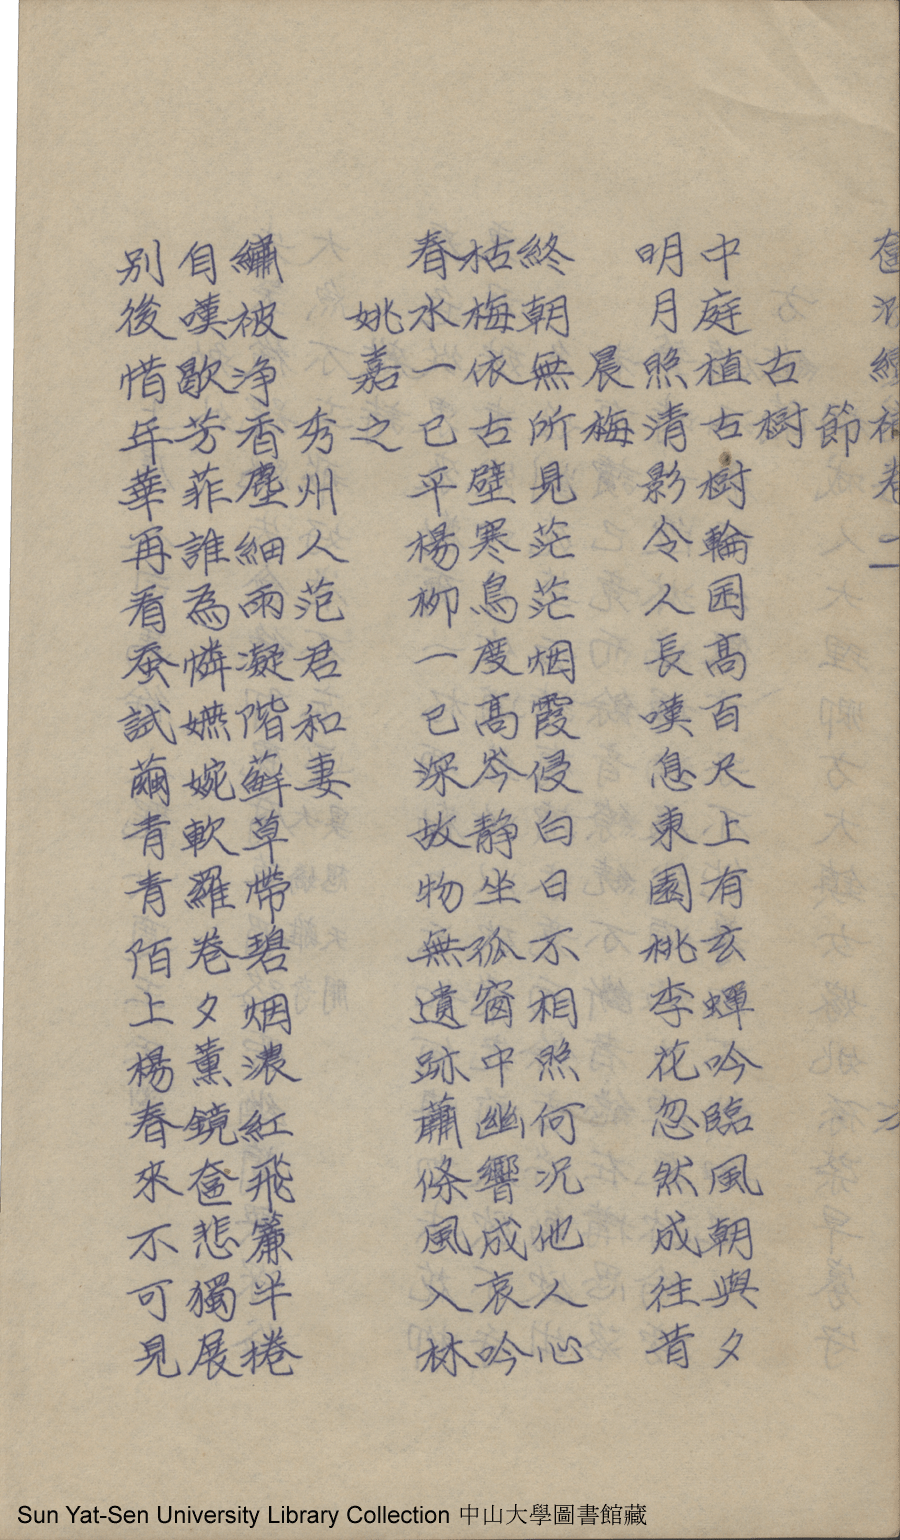 奩泐續補卷二
節
古樹
中庭植古樹輪囷高百尺上有玄蟬吟臨風朝與夕
明月照清影令人長嘆息東園桃李花忽然成往昔
晨梅
終朝無所見茫茫烟霞侵白日不相照何況他人心
枯梅依古壁寒鳥度高岑静坐孤窗中幽響成哀吟
春水一已平楊柳一已深故物無遺跡蕭條風入林
姚嘉之
秀州人范君和妻
繡被浄香塵細雨凝階蘚草帶碧烟濃紅飛簾半捲
自嘆歇芳菲誰為憐嬿婉軟羅卷夕薰鏡奩悲獨展
别後惜年華再看蚕試繭青青陌上楊春來不可見
Sun Yat-Sen University Library Collection 中山大學圖書館藏